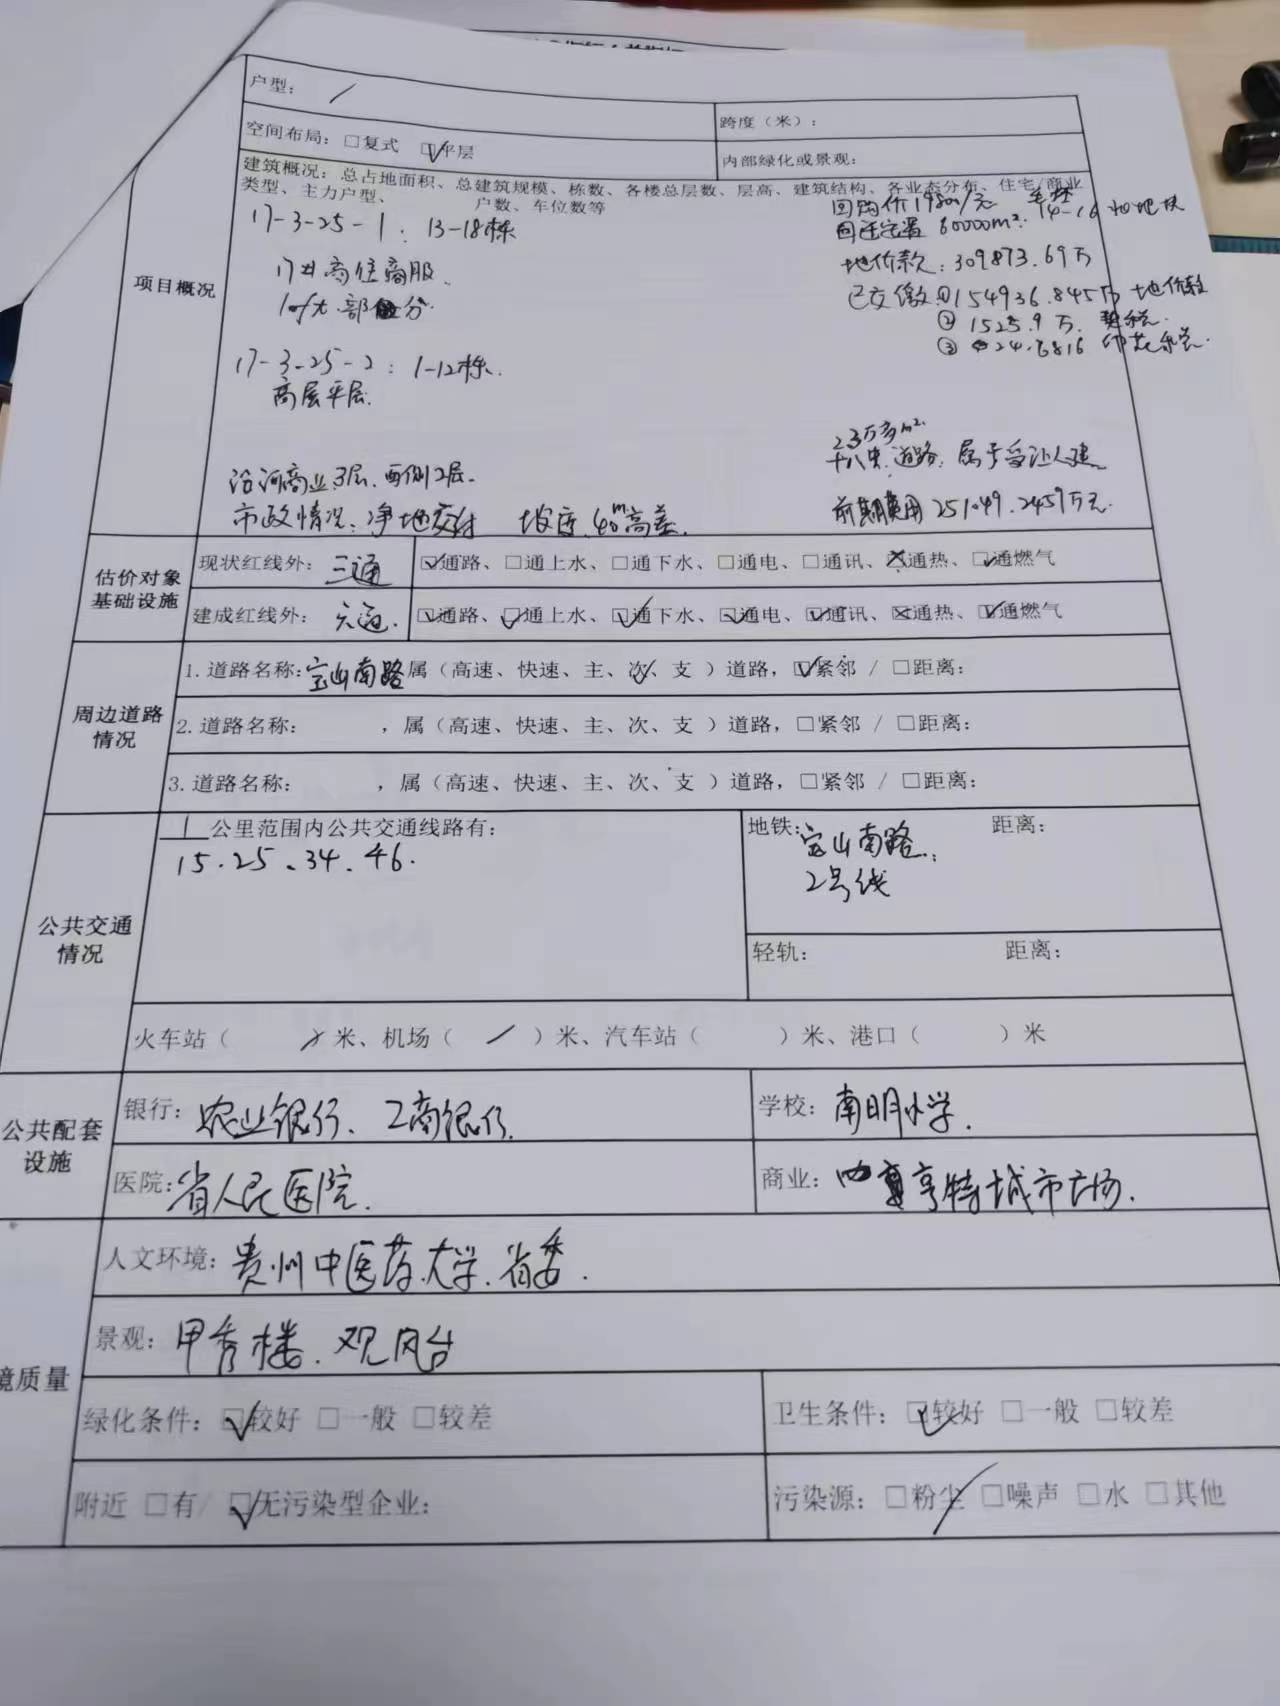 户型： /
跨度（米）：
空间布局：□复式 ☑平层
内部绿化或景观：
建筑概况：总占地面积、总建筑规模、栋数、各楼总层数、层高、建筑结构、各业态分布、住宅/商业
类型、主力户型、 户数、车位数等
项目概况
17-3-25-1：13-18栋
17#商住商服
部分
17-3-25-2：1-12栋.
高层平层.
沿河商业3层.两侧2层.
市政情况：净地交付 坡度.40m高差.
回购价19800/元
回迁安置 60000m². 14-16 地块
地价款：309873.69万
已交缴①154936.845万 地价款
② 1525.9万. 契税.
③ 印花税.
23万多m².
道路.属于受让人建.
前期费用 251049.2459万元.
估价对象
基础设施
现状红线外：三通
☑通路、□通上水、□通下水、□通电、□通讯、☒通热、☑通燃气
建成红线外：六通.
☑通路、☑通上水、☑通下水、☑通电、☑通讯、☒通热、☑通燃气
周边道路
情况
1.道路名称：宝山南路属（高速、快速、主、次、支 ）道路，☑紧邻 / □距离：
2.道路名称： ，属（高速、快速、主、次、支 ）道路，□紧邻 / □距离：
3.道路名称： ，属（高速、快速、主、次、支 ）道路，□紧邻 / □距离：
公共交通
情况
1 公里范围内公共交通线路有：
15.25、34.46.
地铁：宝山南路. 距离：
2号线
轻轨： 距离：
火车站（ / 米、机场（ / ）米、汽车站（ ）米、港口（ ）米
公共配套
设施
银行：农业银行、工商银行.
学校：南明小学.
医院：省人民医院.
商业：亨特城市广场.
境质量
人文环境：贵州中医药大学.省委.
景观：甲秀楼.观风台
绿化条件：☑较好 □一般 □较差
卫生条件：☑较好 □一般 □较差
附近 □有/ ☑无污染型企业：
污染源：□粉尘 □噪声 □水 □其他